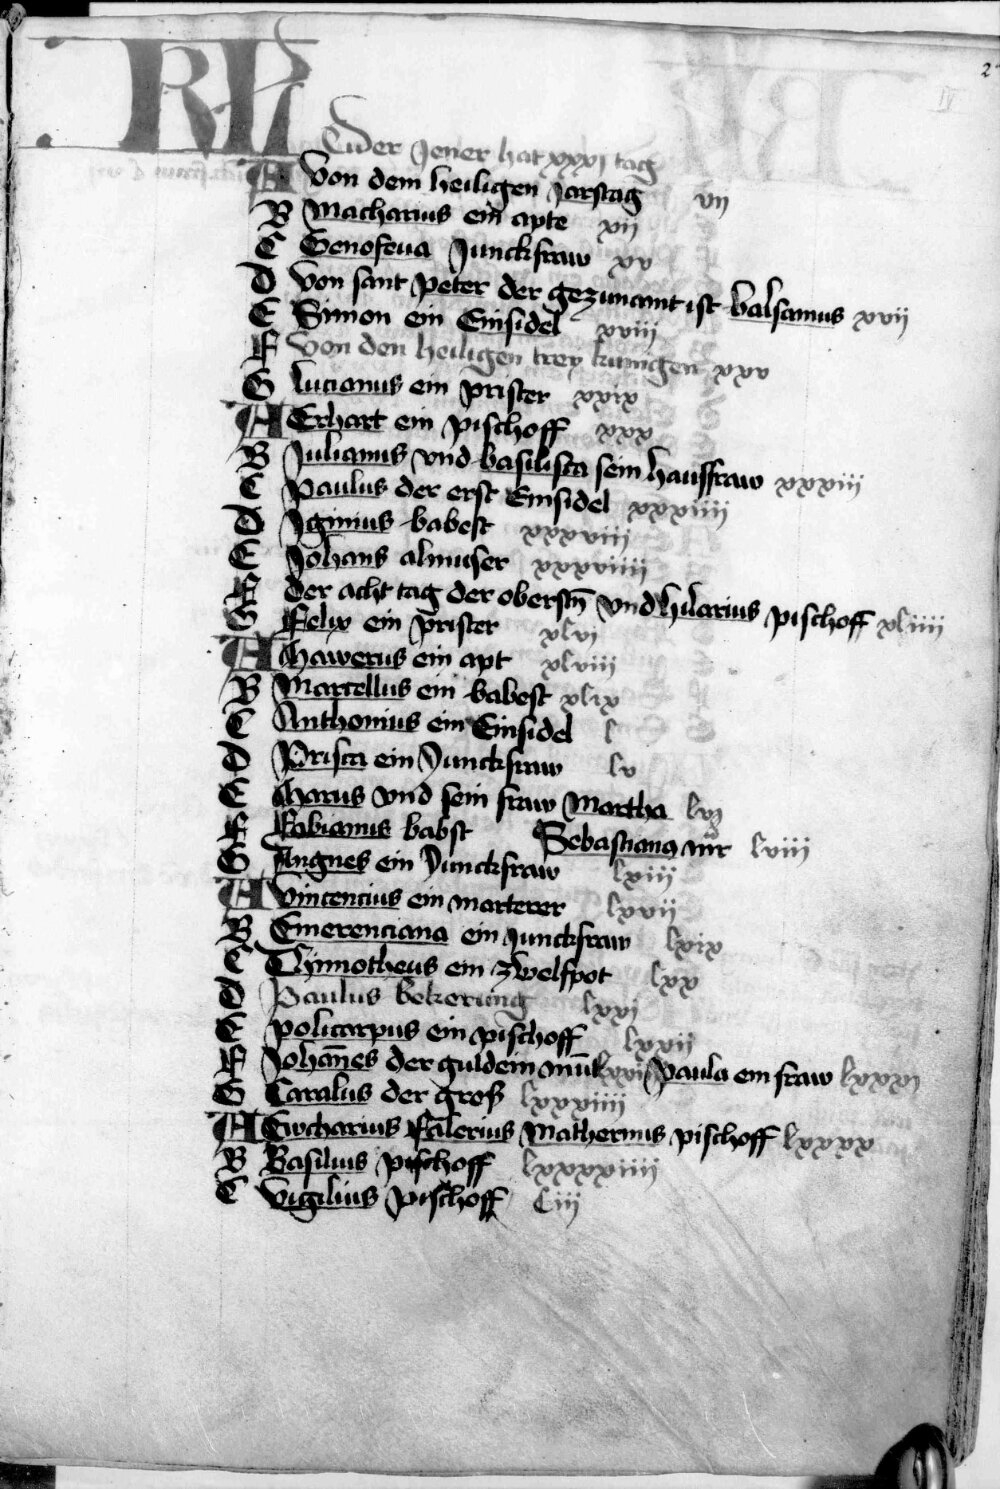 KL
Der Jener hat xxxj tag
A Von dem heiligen Jarstag vij
B Macharius ein apte xij
C Genofeua Junckfraw xv
D Von sant Peter der gezunamt ist balsamus xvij
E Simon ein Einsidel xviij
F Von den heiligen trey kunigen xxv
G Lucianus ein prister xxix
A Erhart ein pischoff xxx
B Julianus vnd basilista sein hausfraw xxxiij
C Paulus der erst Einsidel xxxiiij
D Iginius babest xxxviij
E Johans almuser xxxviiij
F Der acht tag der oberstn̄ vnd hilarius pischoff xliiij
G Felix ein prister xlvj
A Mawerus ein apt xlviij
B Martellus ein babest xlix
C Anthonius ein Einsidel l
D Prisca ein Junckfraw lv
E Marus vnd sein fraw Martha lvj
F Fabianus babst Sebastianus mr̄ lviij
G Angnes ein Junckfraw lxiij
A Vincencius ein marterer lxvij
B Emerenciana ein junckfraw lxix
C Thimotheus ein zwelfpot lxx
D Paulus bekerung lxxj
E Policarpus ein pischoff lxxij
F Johān̄es der guldein mūt Paula ein fraw lxxxj
G Caralus der groß lxxxiiij
A Eucharius Falerius Mathernus pischoff lxxxx
B Basilius pischoff lxxxxiiij
C Vigilius pischoff Ciij